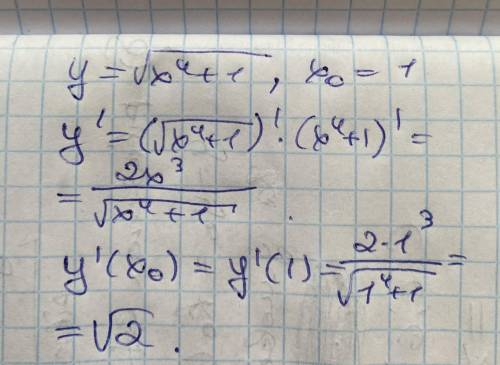 y = √(x⁴+1), x₀ = 1
y' = (√(x⁴+1))' · (x⁴+1)' =
= 2x³/√(x⁴+1).
y'(x₀) = y'(1) = 2·1³/√(1⁴+1) =
= √2.